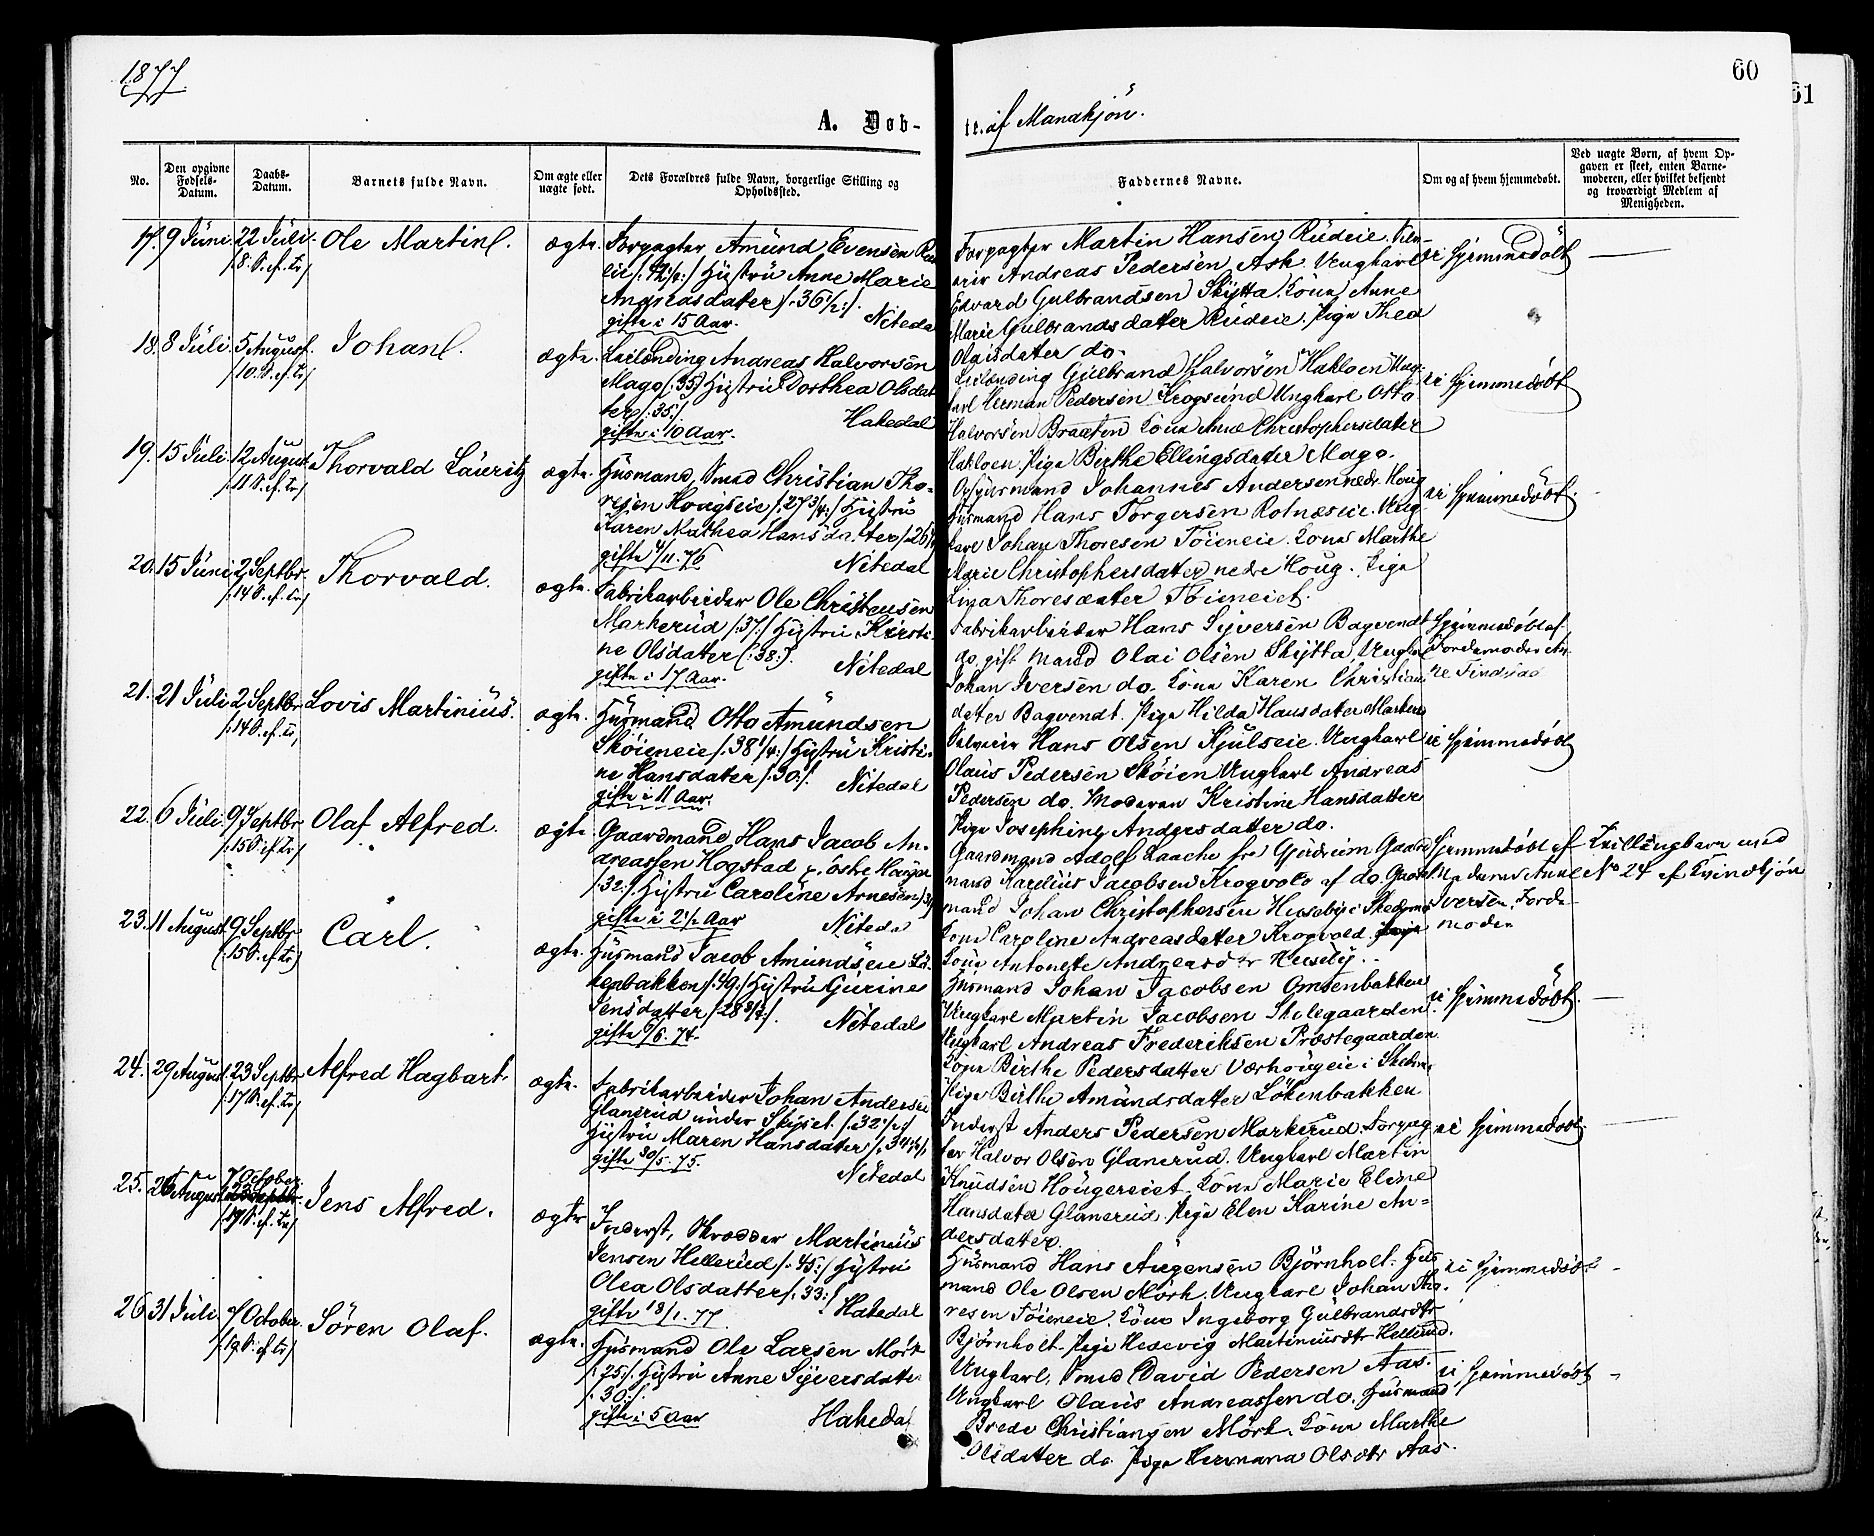 1877
60
61
A. Døb-
te. af Mandkjön.
No.
Den opgivne
Fødsels-
Datum.
Daabs-
Datum.
Barnets fulde Navn.
Om ægte eller
uægte født.
Dets Forældres fulde Navn, borgerlige Stilling og
Opholdssted.
Faddernes Navne.
Om og af hvem hjemmedøbt.
Ved uægte Børn, af hvem Op-
gaven er skeet, enten Barne-
moderen, eller hvilket bekjendt
og troværdigt Medlem af
Menigheden.
17. 9 Juni. 22 Juli.
/:8. S. ef. Tr/
Ole Martin.
ægte.
Forpagter Amund Evensen Ru-
eie /:42½:/ Hustru Anne Marie
Andreasdater /:36½:/.
gifte i 15 Aar. Nitedal
Forpagter Martin Hansen Rudeie.
Andreas Pedersen Ask. Ungkarl
Edvard Gulbrandsen Skytta. Kone Anne
Marie Gulbrandsdatter Rudeie. Pige Thea
Olaisdater do.
ei hjemmedøbt
18. 8 Juli. 5 August.
/:10. S. ef. Tr/
Johan.
ægte.
Leilænding Andreas Halvorsen
Mago (:35) Hustru Dorthea Olsdat
ter /:35:/.
gifte i 10 Aar. Hakedal
Leilænding Gulbrand Halvorsen Hakloen Ung-
karl Herman Pedersen Krogsund Ungkarl Otto
Halvorsen Braaten Kone Anne Christophersdater
Hakloen. Pige Birthe Ellingsdater Mago.
ei hjemmedøbt
19. 15 Juli. 12 August.
/:11 S. ef. Tr/
Thorvald Lauritz
ægte.
Husmand, Smed Christian Tho-
resen Hougseie /:27¾:/ Hustru
Karen Mathea Hansdatter /:26
gifte 4/11. 76 Nitedal
Husmand Johannes Andersen nedr. Houg
Husmand Hans Torgersen Rotnæseie. Ung-
karl Johan Thoresen Töieneie. Kone Marthe
Marie Christophersdater nedre Houg. Pige
Lina Thoresdater Töieneiet.
ei hjemmedøbt.
20. 15 Juni 2 Septbr.
/:14 S. ef. Tr/
Thorvald.
ægte.
Fabrikarbeider Ole Christensen
Markerud /:37:/ Hustru Kirsti-
ne Olsdatter (:38:).
gifte i 17 Aar. Nitedal
Fabrikarbeider Hans Syversen Bagvendt
do. gift Mand Olai Olsen Skytta, Ungkarl
Johan Iversen do. Kone Karen Christians
dater Bagvendt. Pige Hilda Hansdater Markeru
hjemmedøbt af
Jordemoder An-
ne Tindstad
21. 21 Juli 2 Septbr
/:14 S. ef. Tr/
Lovis Martinius.
ægte.
Husmand Otto Amundsen
Skøieneie /:38¼:/ Hustru Kristi-
ne Hansdater /:30:/.
gifte i 11 Aar. Nitedal
Hans Olsen Kjulseie. Ungkarl
Olaus Pedersen Skøien Ungkarl Andreas
Pedersen do. Moderen Kristine Hansdatter
Pige Josephine Andersdatter do.
ei hjemmedøbt
22. 6 Juli. 9 Septbr.
/:15 S. ef. Tr/
Olaf Alfred.
ægte
Gaardmand Hans Jacob An-
dreassen Hogstad p. östre Hougen
/:32:/ Hustru Caroline Arnesen /:31
gifte i 2½ Aar Nitedal
Gaardmand Adolf Laache fra Gjerdrum Gaard
mand Karelius Jacobsen Krogvold af do. Gaard
mand Johan Christophersen Huseby i Skedsmo
Kone Caroline Andreasdater Krogvold.
Kone Antonette Andreasdtr Huseby.
Hjemmedøbt af
Madame Anne
Iversen, Jorde-
moder
Tvillingbarn med
No 24 af Kvindkjön
23. 11 August 9 Septbr
(:15 S. ef. Tr)
Carl.
ægte.
Husmand Jacob Amundsen Lö-
kenbakken /:49:/ Hustru Gurine
Jensdatter /28¾:/.
gifte 9/6. 74. Nitedal
Husmand Johan Jacobsen Omsenbakken
Ungkarl Martin Jacobsen Skolegaarden
Ungkarl Andreas Frederiksen Præstegaarden
Kone Birthe Pedersdatter Værhougeie i Skedsm.
Pige Birthe Amundsdatter Lökenbakken
ei hjemmedøbt.
24. 29 August. 23 Septbr.
/:17 S. ef. Tr/
Alfred Hagbart
ægte.
Fabrikarbeider Johan Andersen
Glanerud under Skyset /:32½:/
Hustru Maren Hansdater /:34¼:/
gifte 30/5. 75. Nitedal
Inderst Anders Pedersen Markerud. Forpag-
ter Halvor Olsen Glanerud. Ungkarl Martin
Knudsen Hougereiet. Kone Marie Eline
Hansdater Glanerud. Pige Elen Karine An-
dersdater.
ei hjemmedøbt.
25. 26 August 7 October
/:19 S. ef. Tr/
Jens Alfred.
ægte
Inderst, Skrædder Martinius
Jensen Hellerud /:45:/ Hustru
Olea Olsdatter /:33:/
gifte 18/1. 77. Hakedal
Husmand Hans Augensen Björnholt. Hus-
mand Ole Olsen Mörk. Ungkarl Johan Tho-
resen Töieneie. Kone Ingeborg Gulbrandsdtr
Björnholt. Pige Hedevig Martiniusdtr Hellerud.
ei hjemmedøbt
26 31 Juli. 7 October.
/:19 S. ef Tr/
Sören Olaf.
ægte.
Husmand Ole Larsen Mörk
/:75:/. Hustru Anne Syversdater
/:30:/.
gifte i 5 Aar Hakedal
Ungkarl, Smed David Pedersen Aas.
Ungkarl Olaus Andreassen do. Husmand
Brede Christiansen Mörk. Kone Marthe
Olsdatter do. Pige Hermana Olsdtr Aas.
ei hjemmedøbt